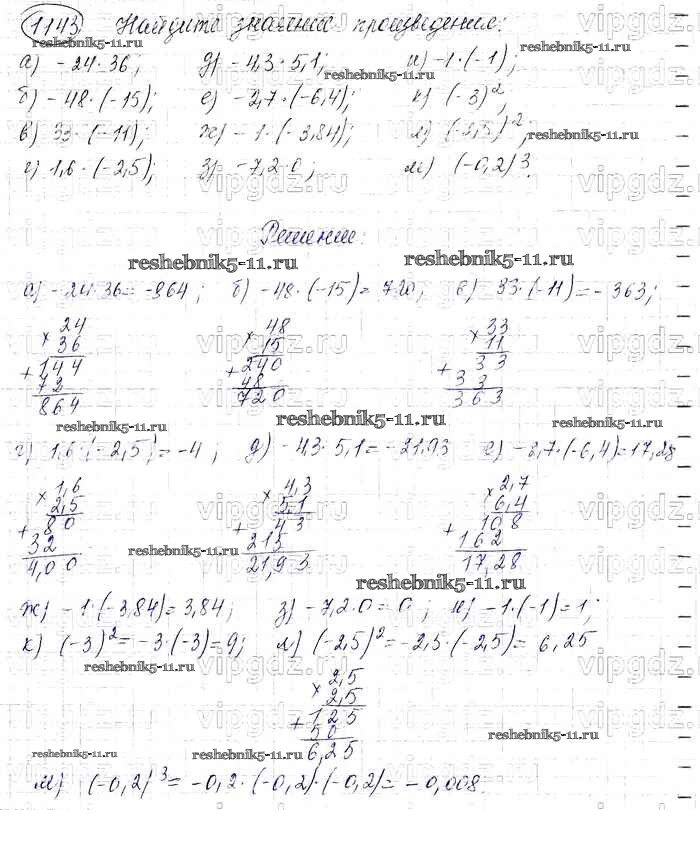 1143. Найдите значение произведения:
reshebnik5-11.ru
а) -24·36; д) -4,3·5,1; и) -1·(-1);
reshebnik5-11.ru
б) -48·(-15); е) -2,7·(-6,4); к) (-3)²;
в) 33·(-11); ж) -1·(-3,84); л) (-2,5)²;
reshebnik5-11.ru
г) 1,6·(-2,5); з) -7,2·0; м) (-0,2)³.
vipgdz.ru
Решение:
reshebnik5-11.ru reshebnik5-11.ru
а) -24·36=-864; б) -48·(-15)=720; в) 33·(-11)=-363;
24 48 33
× 36 × 15 × 11
144 240 33
+ 72 + 48 + 33
864 720 363
reshebnik5-11.ru reshebnik5-11.ru reshebnik5-11.ru
г) 1,6·(-2,5)=-4; д) -4,3·5,1=-21,93 е) -2,7·(-6,4)=17,28
1,6 4,3 2,7
× 2,5 × 5,1 × 6,4
80 43 108
+ 32 + 215 + 162
4,00 21,93 17,28
reshebnik5-11.ru
reshebnik5-11.ru
ж) -1·(-3,84)=3,84; з) -7,2·0=0; и) -1·(-1)=1;
к) (-3)²=-3·(-3)=9; л) (-2,5)²=-2,5·(-2,5)=6,25
reshebnik5-11.ru
2,5
× 2,5
125
+ 50
6,25
reshebnik5-11.ru reshebnik5-11.ru reshebnik5-11.ru
м) (-0,2)³=-0,2·(-0,2)·(-0,2)=-0,008.